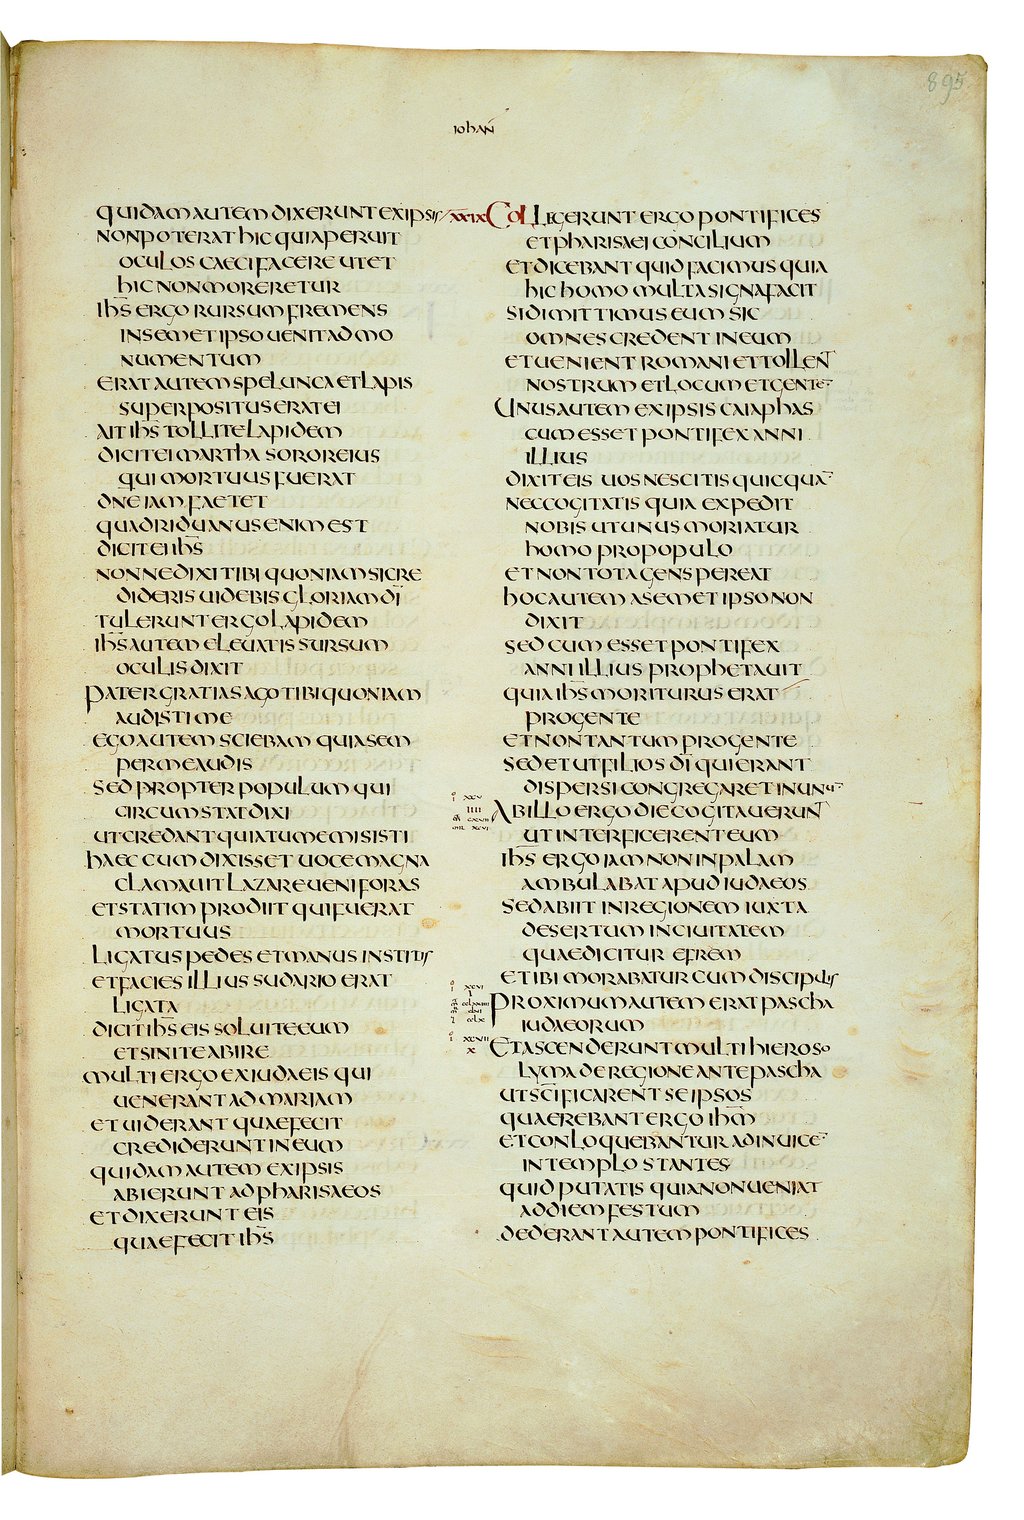 895
iohañ
quidam autem dixerunt ex ipsis
non poterat hic qui aperuit
oculos caeci facere ut et
hic non moreretur
ih̅s ergo rursum fremens
in semet ipso uenit ad mo
numentum
erat autem spelunca et lapis
superpositus erat ei
ait ih̅s tollite lapidem
dicit ei martha soror eius
qui mortuus fuerat
dn̅e iam faetet
quadriduanus enim est
dicit ei ih̅s
nonne dixi tibi quoniam si cre
dideris uidebis gloriam di̅
tulerunt ergo lapidem
ih̅s autem eleuatis sursum
oculis dixit
pater gratias ago tibi quoniam
audisti me
ego autem sciebam quia sem
per me audis
sed propter populum qui
circumstat dixi
ut credant quia tu me misisti
haec cum dixisset uoce magna
clamauit lazare ueni foras
et statim prodiit qui fuerat
mortuus
ligatus pedes et manus institis
et facies illius sudario erat
ligata
dicit ih̅s eis soluite eum
et sinite abire
multi ergo ex iudaeis qui
uenerant ad mariam
et uiderant quae fecit
crediderunt in eum
quidam autem ex ipsis
abierunt ad pharisaeos
et dixerunt eis
quae fecit ih̅s
xxix Collegerunt ergo pontifices
et pharisaei concilium
et dicebant quid facimus quia
hic homo multa signa facit
si dimittimus eum sic
omnes credent in eum
et uenient romani et tollen̅
nostrum et locum et gente̅
Unus autem ex ipsis caiaphas
cum esset pontifex anni
illius
dixit eis uos nescitis quicqua̅
nec cogitatis quia expedit
nobis ut unus moriatur
homo pro populo
et non tota gens pereat
hoc autem a semet ipso non
dixit
sed cum esset pontifex
anni illius prophetauit
quia ih̅s moriturus erat
pro gente
et non tantum pro gente
sed et ut filios di̅ qui erant
dispersi congregaret in unu̅
xcv
iiii
Ab illo ergo die cogitauerun̅
ut interficerent eum
ih̅s ergo iam non in palam
ambulabat apud iudaeos
sed abiit in regionem iuxta
desertum in ciuitatem
quae dicitur efrem
et ibi morabatur cum discipulis
xcvi
i
Proximum autem erat pascha
iudaeorum
xcvii
x
Et ascenderunt multi hieroso
lyma de regione ante pascha
ut sc̅ificarent se ipsos
quaerebant ergo ih̅m
et conloquebantur ad inuice̅
in templo stantes
quid putatis quia non ueniat
ad diem festum
dederant autem pontifices